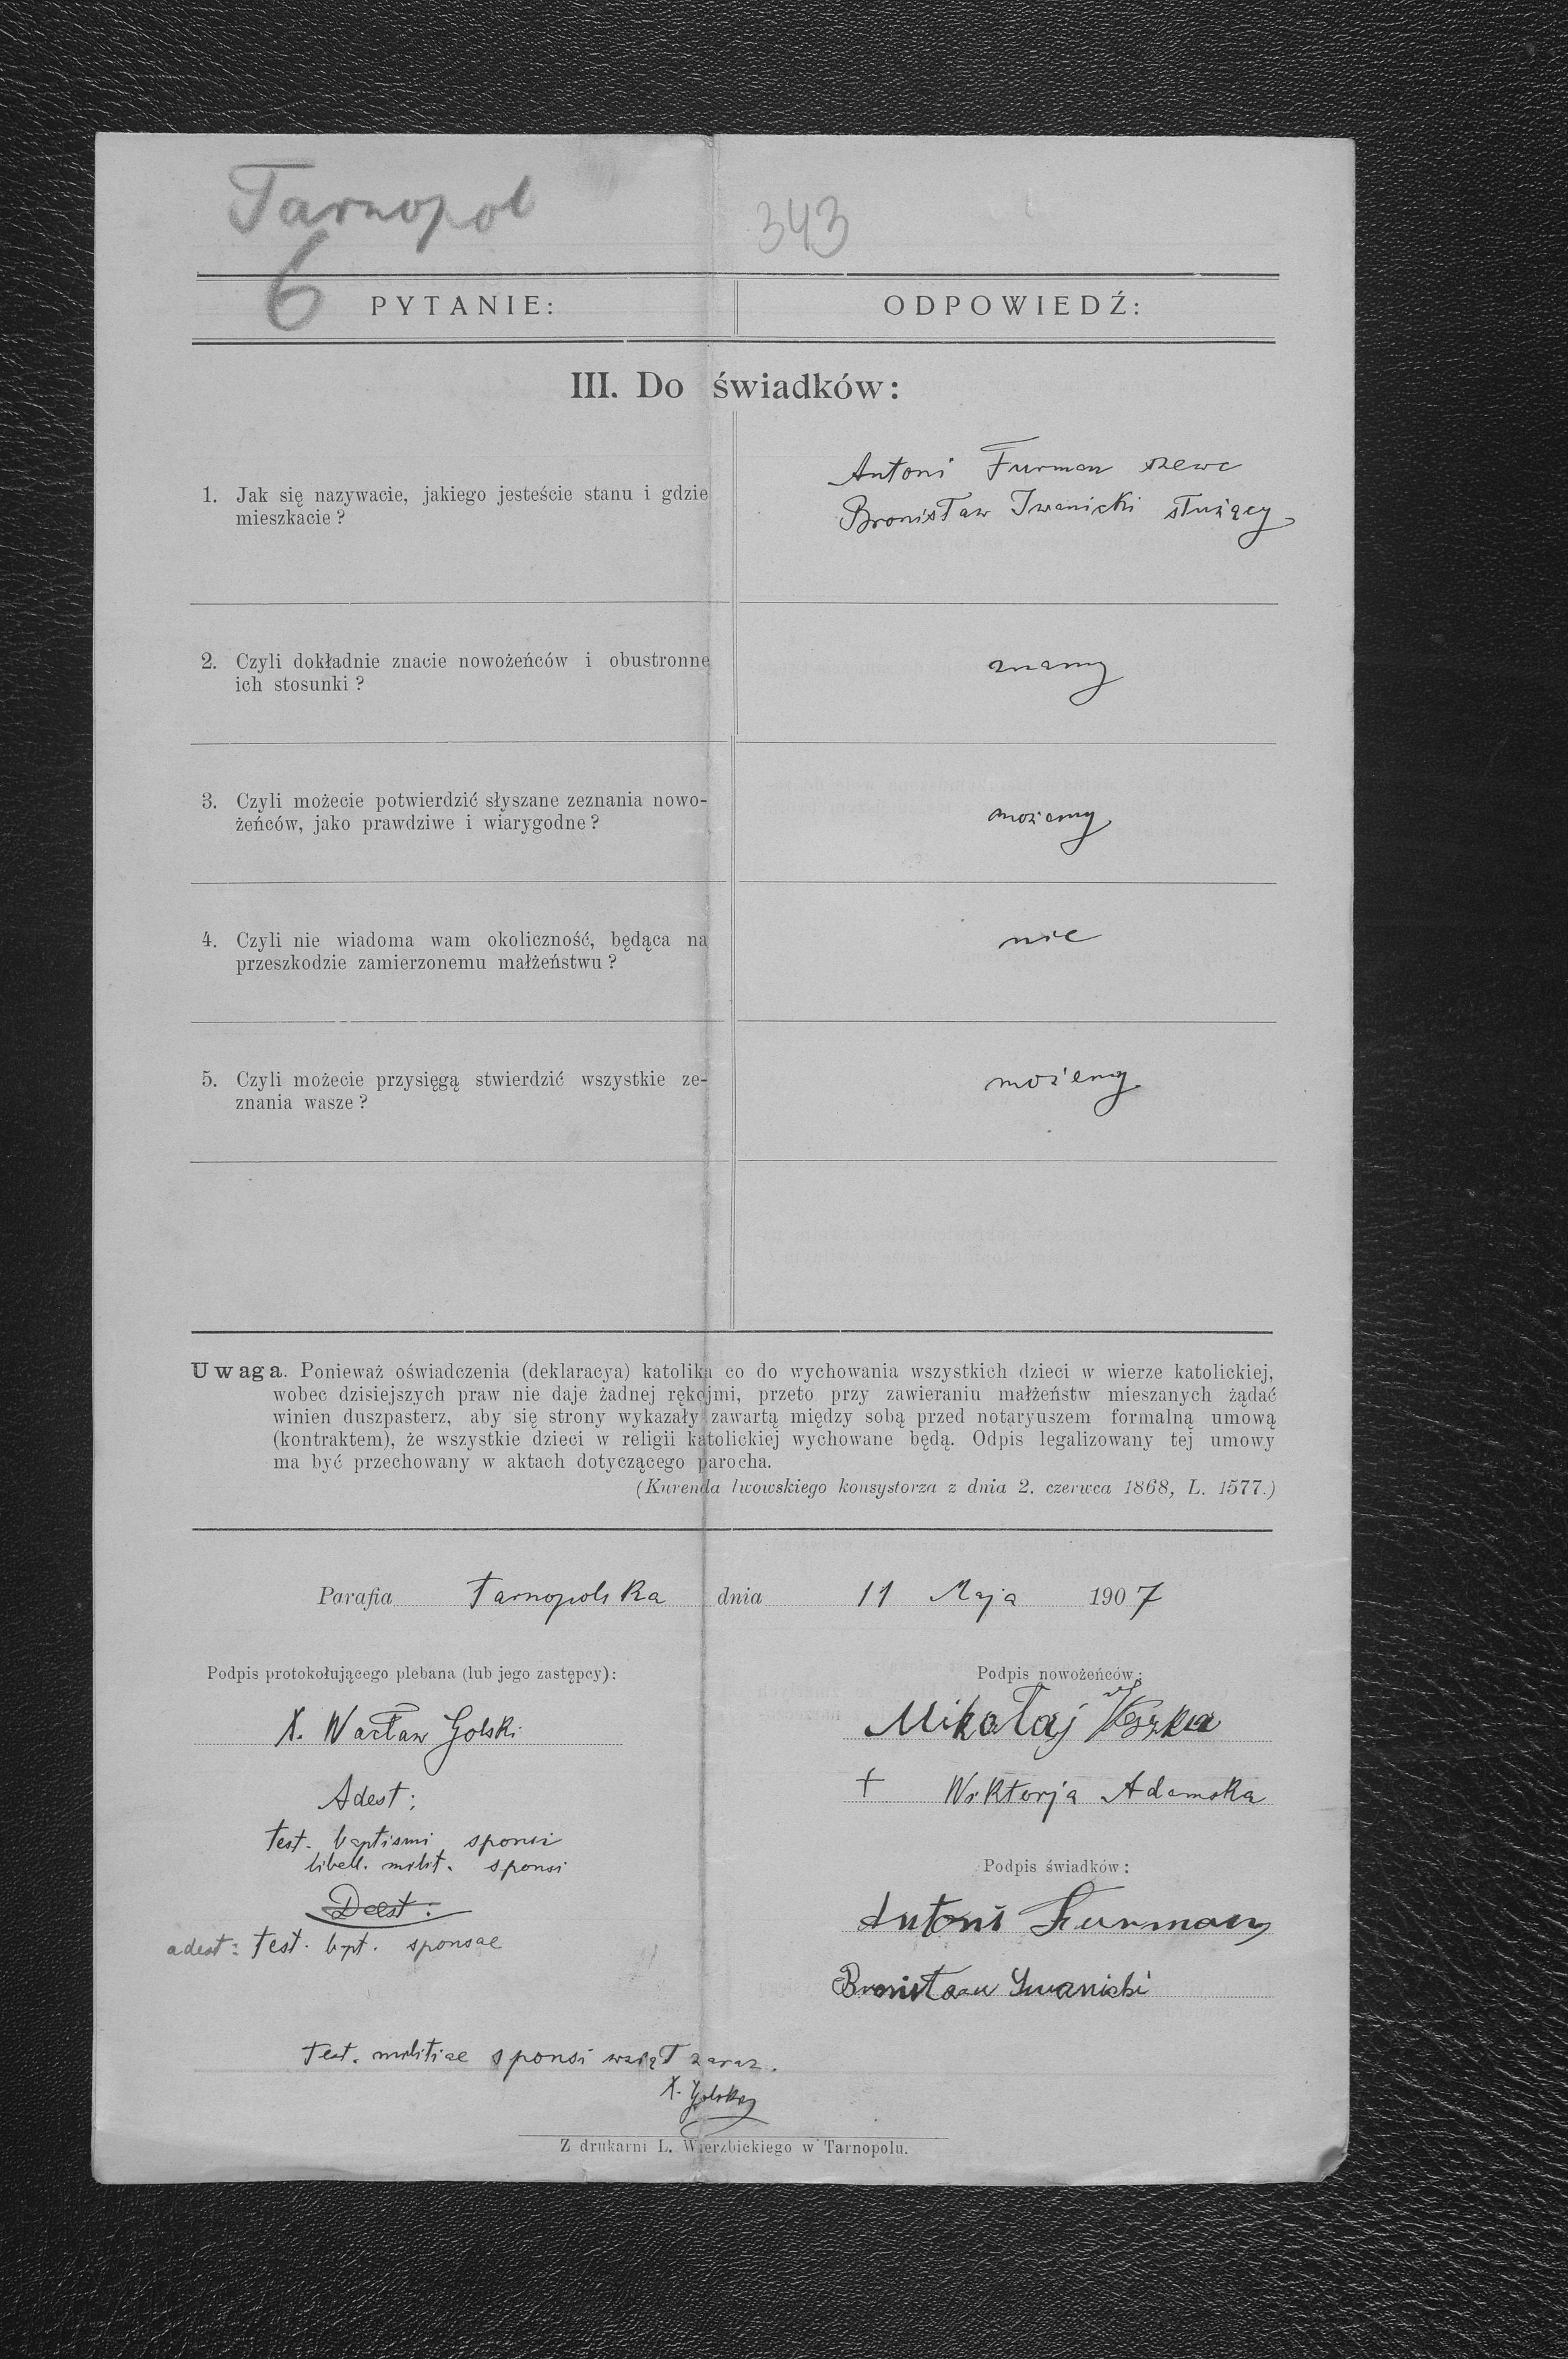 Tarnopol
343
6
PYTANIE:
ODPOWIEDŹ:
III. Do świadków:
1. Jak się nazywacie, jakiego jesteście stanu i gdzie
mieszkacie?
Antoni Furman szewc
Bronisław Iwanicki służący
2. Czyli dokładnie znacie nowożeńców i obustronne
ich stosunki?
znamy
3. Czyli możecie potwierdzić słyszane zeznania nowo-
żeńców, jako prawdziwe i wiarygodne?
możemy
4. Czyli nie wiadoma wam okoliczność, będąca na
przeszkodzie zamierzonemu małżeństwu?
nie
5. Czyli możecie przysięgą stwierdzić wszystkie ze-
znania wasze?
możemy
Uwaga. Ponieważ oświadczenia (deklaracya) katolika co do wychowania wszystkich dzieci w wierze katolickiej,
wobec dzisiejszych praw nie daje żadnej rękojmi, przeto przy zawieraniu małżeństw mieszanych żądać
winien duszpasterz, aby się strony wykazały zawartą między sobą przed notaryuszem formalną umową
(kontraktem), że wszystkie dzieci w religii katolickiej wychowane będą. Odpis legalizowany tej umowy
ma być przechowany w aktach dotyczącego parocha.
(Kurenda lwowskiego konsystorza z dnia 2. czerwca 1868, L. 1577.)
Parafia Tarnopolska dnia 11 Maja 1907
Podpis protokołującego plebana (lub jego zastępcy):
X. Wacław Golski
Adest:
test. baptismi sponsi
libell. milit. sponsi
Deest:
adest: test. bpt. sponsae
Podpis nowożeńców:
Mikołaj
+ Wiktorja Adamska
Podpis świadków:
Antoni Furman
Bronisław Iwanicki
Test. militiae sponsi wziął zaraz.
X. Golski
Z drukarni L. Wierzbickiego w Tarnopolu.